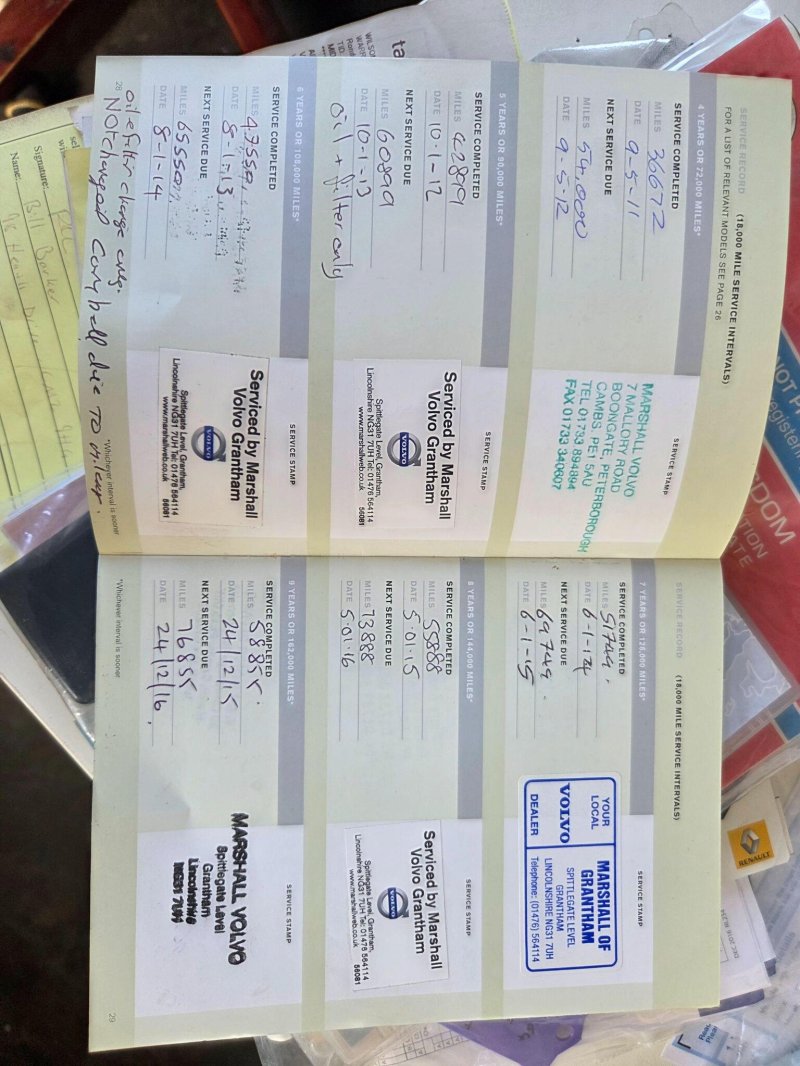 SERVICE RECORD (18,000 MILE SERVICE INTERVALS)
FOR A LIST OF RELEVANT MODELS SEE PAGE 26
4 YEARS OR 72,000 MILES*
SERVICE COMPLETED
MILES 36672
DATE 9-5-11
NEXT SERVICE DUE
MILES 54,000
DATE 9-5-12
SERVICE STAMP
MARSHALL VOLVO
7 MALLORY ROAD
BOONGATE, PETERBOROUGH
CAMBS. PE1 5AU
TEL 01733 894894
FAX 01733 340007
5 YEARS OR 90,000 MILES*
SERVICE COMPLETED
MILES 42899
DATE 10-1-12
NEXT SERVICE DUE
MILES 60899
DATE 10-1-13
oil + filter only
SERVICE STAMP
Serviced by Marshall
Volvo Grantham
VOLVO
Spittlegate Level, Grantham,
Lincolnshire NG31 7UH Tel: 01476 564114
www.marshallweb.co.uk 56081
6 YEARS OR 108,000 MILES*
SERVICE COMPLETED
MILES 47550
DATE 8-1-13
NEXT SERVICE DUE
MILES 65550
DATE 8-1-14
SERVICE STAMP
Serviced by Marshall
Volvo Grantham
VOLVO
Spittlegate Level, Grantham,
Lincolnshire NG31 7UH Tel: 01476 564114
www.marshallweb.co.uk 56081
*Whichever interval is sooner
28
oil & filter change only.
NOT changed due TO
SERVICE RECORD (18,000 MILE SERVICE INTERVALS)
7 YEARS OR 126,000 MILES*
SERVICE COMPLETED
MILES 51749.
DATE 6-1-14
NEXT SERVICE DUE
MILES 69749.
DATE 6-1-15
SERVICE STAMP
YOUR
LOCAL
VOLVO
DEALER
MARSHALL OF
GRANTHAM
SPITTLEGATE LEVEL
GRANTHAM
LINCOLNSHIRE NG31 7UH
Telephone: (01476) 564114
8 YEARS OR 144,000 MILES*
SERVICE COMPLETED
MILES 55888
DATE 5.01.15
NEXT SERVICE DUE
MILES 73888
DATE 5.01.16
SERVICE STAMP
Serviced by Marshall
Volvo Grantham
VOLVO
Spittlegate Level, Grantham,
Lincolnshire NG31 7UH Tel: 01476 564114
www.marshallweb.co.uk 56081
9 YEARS OR 162,000 MILES*
SERVICE COMPLETED
MILES 58855.
DATE 24/12/15
NEXT SERVICE DUE
MILES 76855
DATE 24/12/16.
SERVICE STAMP
MARSHALL VOLVO
Spittlegate Level
Grantham
Lincolnshire
NG31 7UH
*Whichever interval is sooner
29
Signature: Bill Barker
Name:
RENAULT